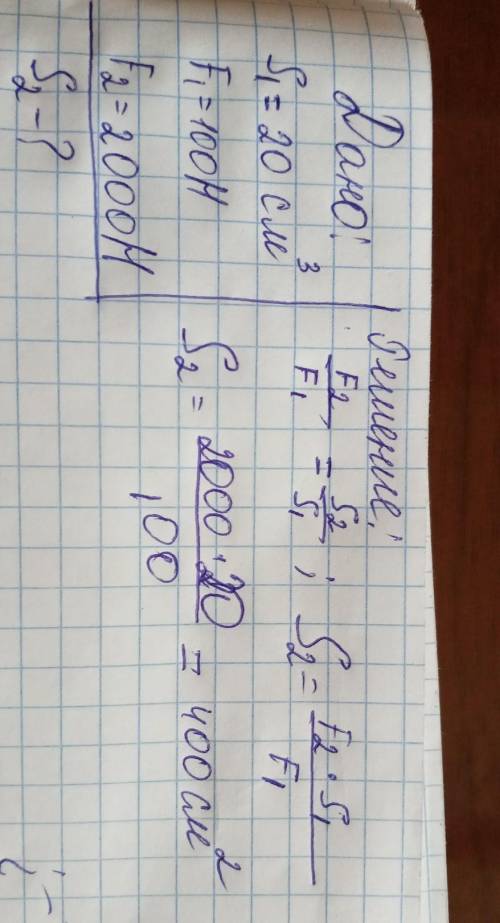 Дано:
S₁ = 20 см³
F₁ = 100Н
F₂ = 2000Н
S₂ - ?
Решение:
F₂/F₁ = S₂/S₁ ; S₂ = F₂·S₁/F₁
S₂ = 2000·20/100 = 400 см²